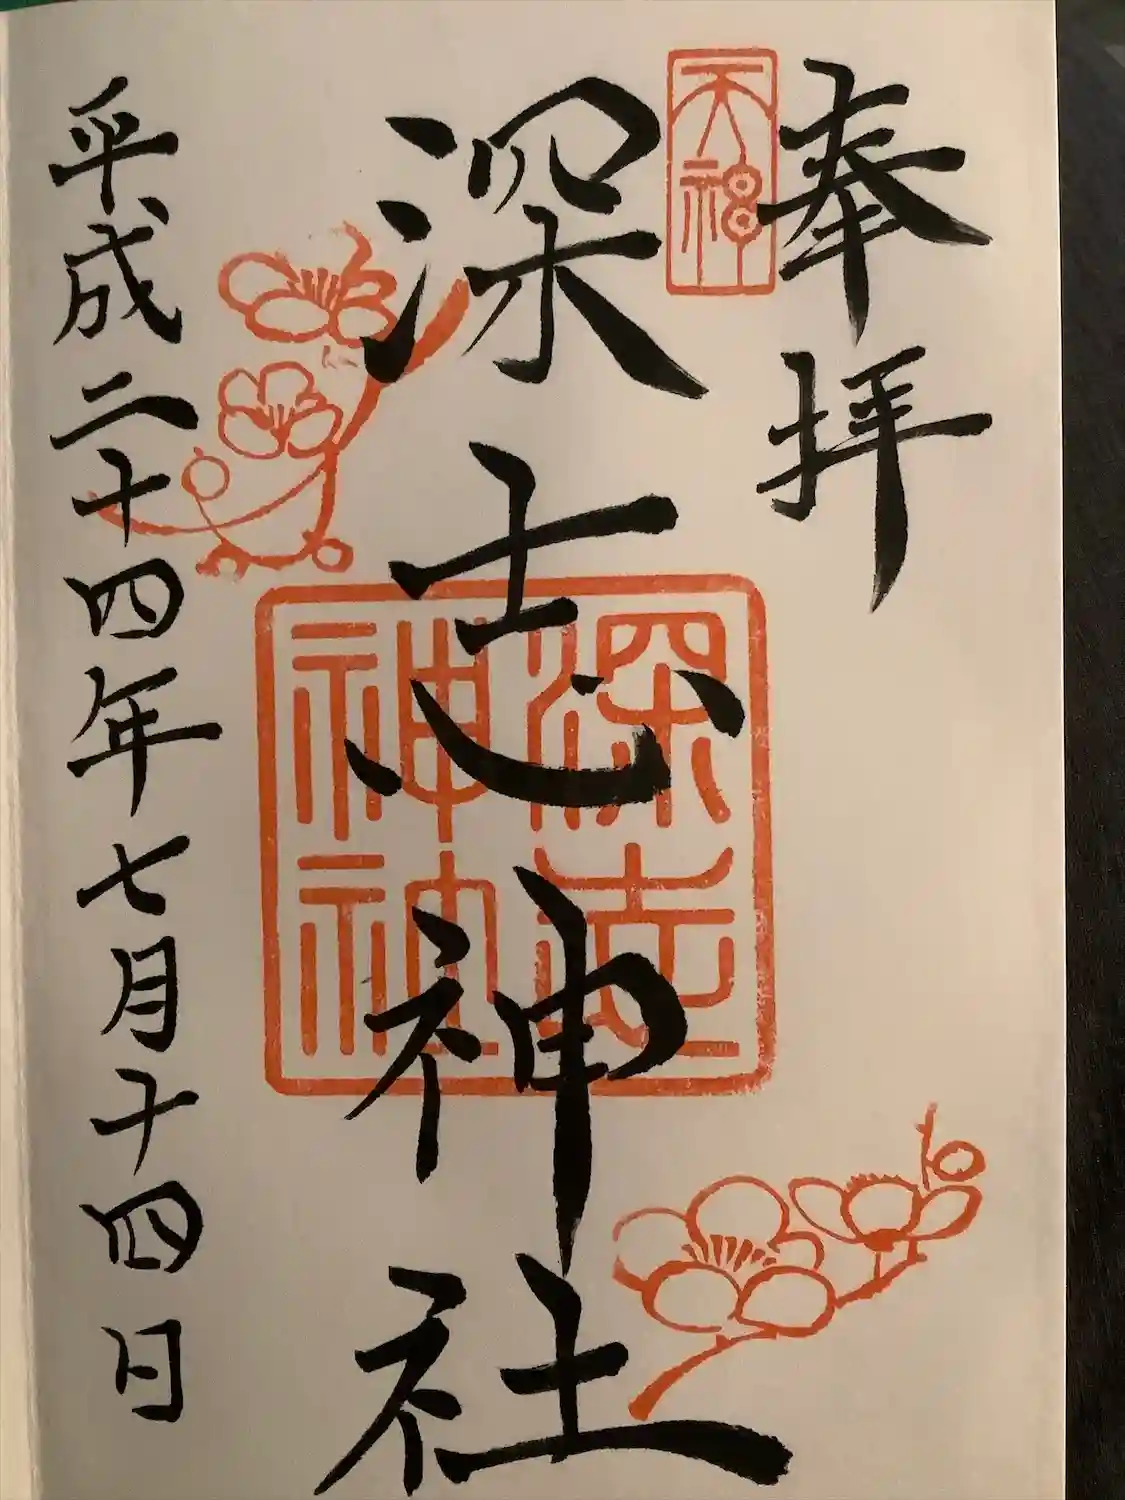 奉拝
天神
深志神社
深志
神社
平成二十四年七月十四日